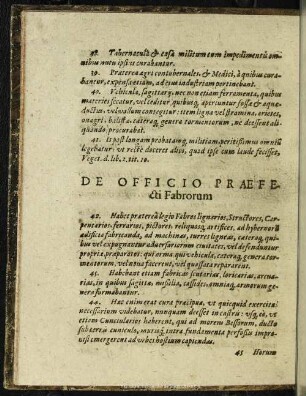 38. Tabernacula & casæ militum cum Impedimentis om-
nibus nutu ipsius curabantur.
39. Præterea ægri contubernales, & Medici, à quibus cura-
bantur, expensæ etiam, ad eius industriam pertinebant.
40. Vehicula, sagittarij, nec non etiam ferramenta, quibus
materies secatur, vel ceditur, quibusq; aperiuntur fossæ & aquæ-
ductus: vel vallum contegitur: item ligna vel stramina, arietes,
onagri, balistæ, cæteraq; genera tormentorum, ne deessent ali-
quando, procurabat.
41. Is post longam probatamq; militiam, peritissimus omnium
legebatur: ut rectè doceret alios, quod ipse cum laude fecisset,
Veget. d. lib. 2. tit. 10.
DE OFFICIO PRAEFE-
cti Fabrorum
42. Habet præterea legio Fabros lignarios, Structores, Car-
pentarios, ferrarios, pictores reliquosq; artifices, ad hybernorum
ædificia fabricanda, ad machinas, turres ligneas, cæteraq; quibus
vel expugnantur adversariorum civitates, vel defenduntur
propriæ, præparatos: qui arma qui vehicula, cæteraq; genera tor-
mentorum, vel nova facerent, vel quassata repararent.
43. Habebant etiam fabricas scutarias, loricarias, arcua-
rias, in quibus sagittæ, missilia, cassides, omniaq; armorum ge-
nera formabantur.
44. Hæc enim erat cura præcipua, ut quicquid exercitui
necessarium videbatur, nunquam deesset in castris: usq; eò, ut
etiam Cunicularios haberent, qui ad morem Bessorum, ducto
sub terris cuniculo, murisq; intra fundamenta perfossis impro-
visi emergerent ad urbes hostium capiendas.
45 Horum